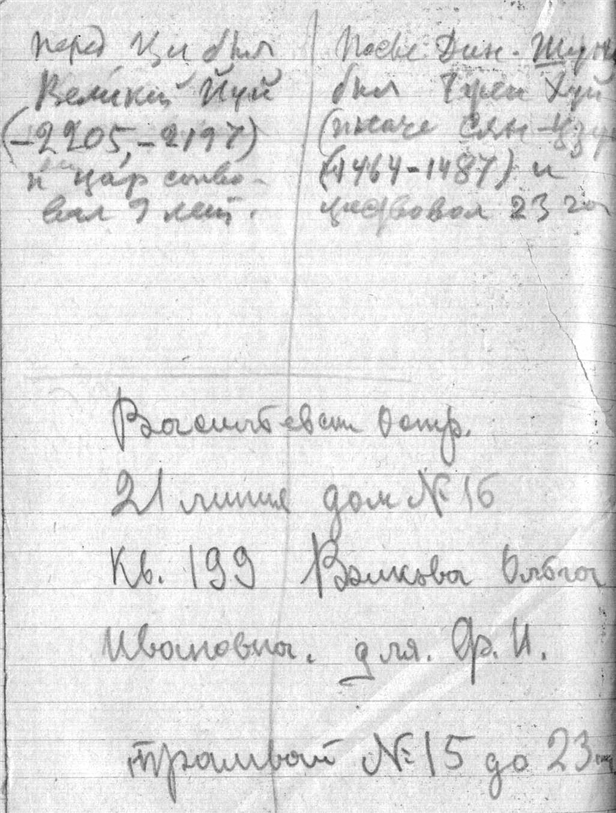 перед Ци был
Великий Йуй
(-2205,-2197)
и царство-
вал 9 лет.
После Дин-Шуна
был Чрен Хуй
(иначе Сян-Цзу
(1464-1487) и
царствовал 23 го
Васильевск Остр.
21 линия дом № 16
Кв. 199 Волкова Ольга
Ивановна. для. Ф. И.
трамвай № 15 до 23